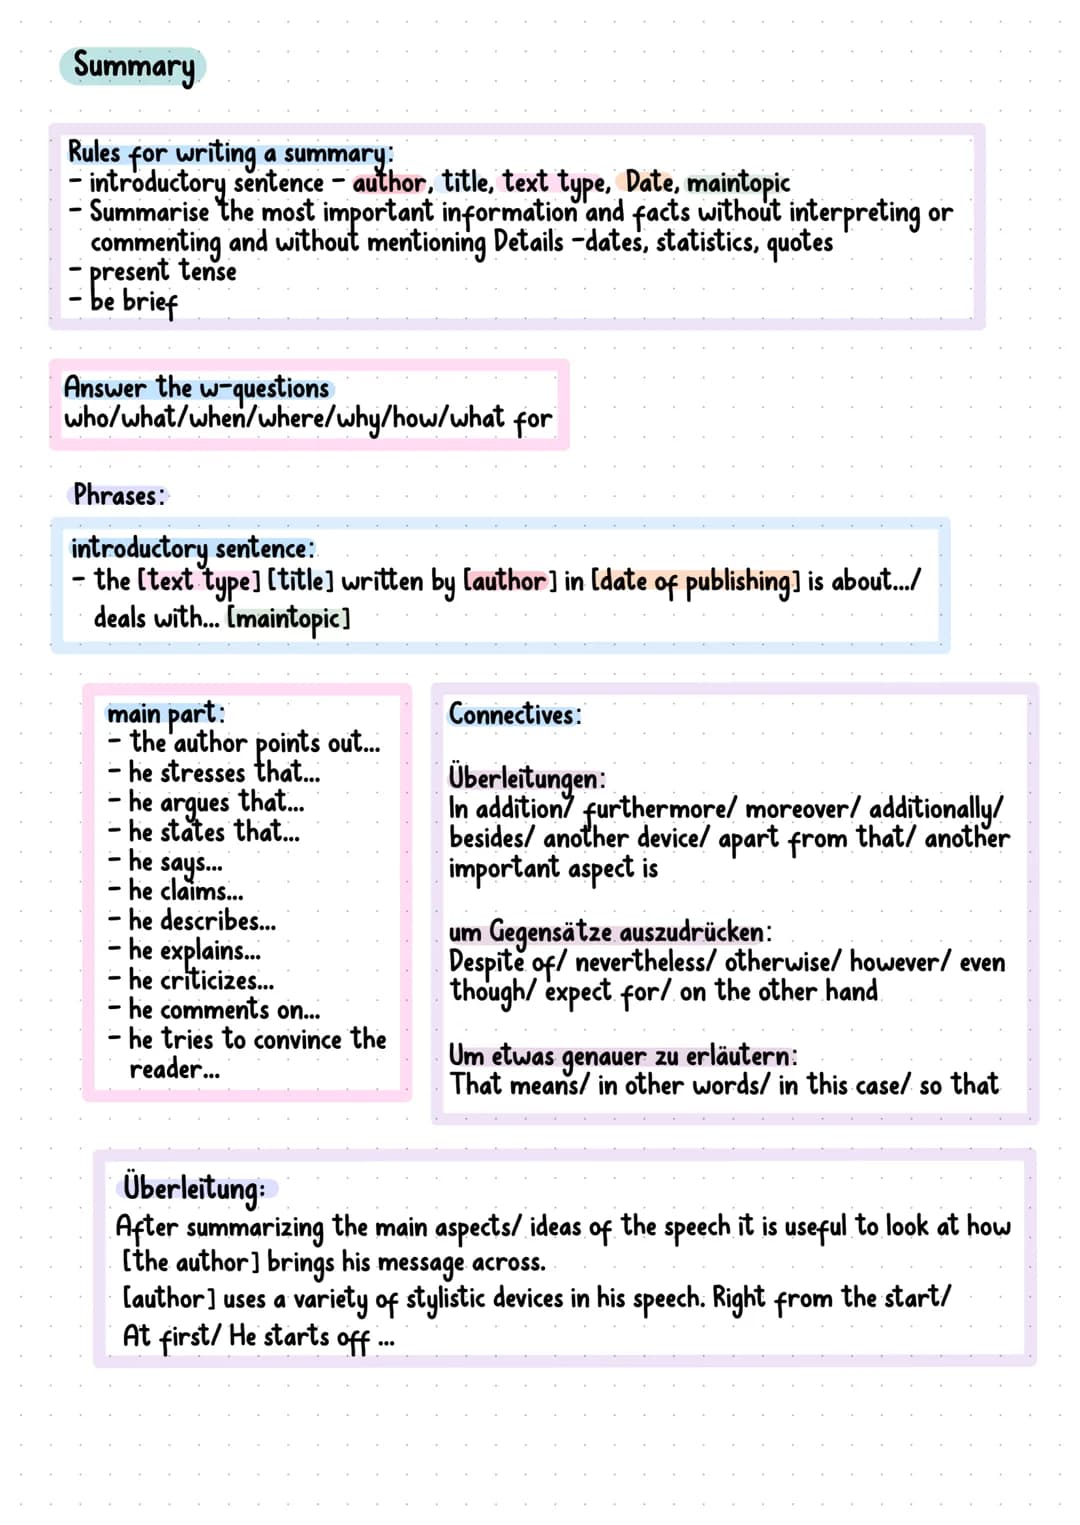 Summary
Rules for writing a summary:
- introductory sentence - author, title, text type, Date, maintopic
- Summarise the most important information and facts without interpreting or
commenting and without mentioning Details -dates, statistics, quotes
- present tense
- be brief
Answer the w-questions
who/what/when/where/why/how/what for
Phrases:
introductory sentence:
- the [text type] [title] written by [author] in [date of publishing] is about.../
deals with... [maintopic]
main part:
- the author points out...
- he stresses that...
- he argues that...
- he states that...
- he says...
- he claims...
- he describes...
- he explains...
- he criticizes...
- he comments on...
- he tries to convince the
reader...
Connectives:
Überleitungen:
In addition/ furthermore/ moreover/ additionally/
besides/ another device/ apart from that/ another
important aspect is
um Gegensätze auszudrücken:
Despite of/ nevertheless/ otherwise/ however/ even
though/ expect for/ on the other hand
Um etwas genauer zu erläutern:
That means/ in other words/ in this case/ so that
Überleitung:
After summarizing the main aspects/ ideas of the speech it is useful to look at how
[the author] brings his message across.
[author] uses a variety of stylistic devices in his speech. Right from the start/
At first/ He starts off ...